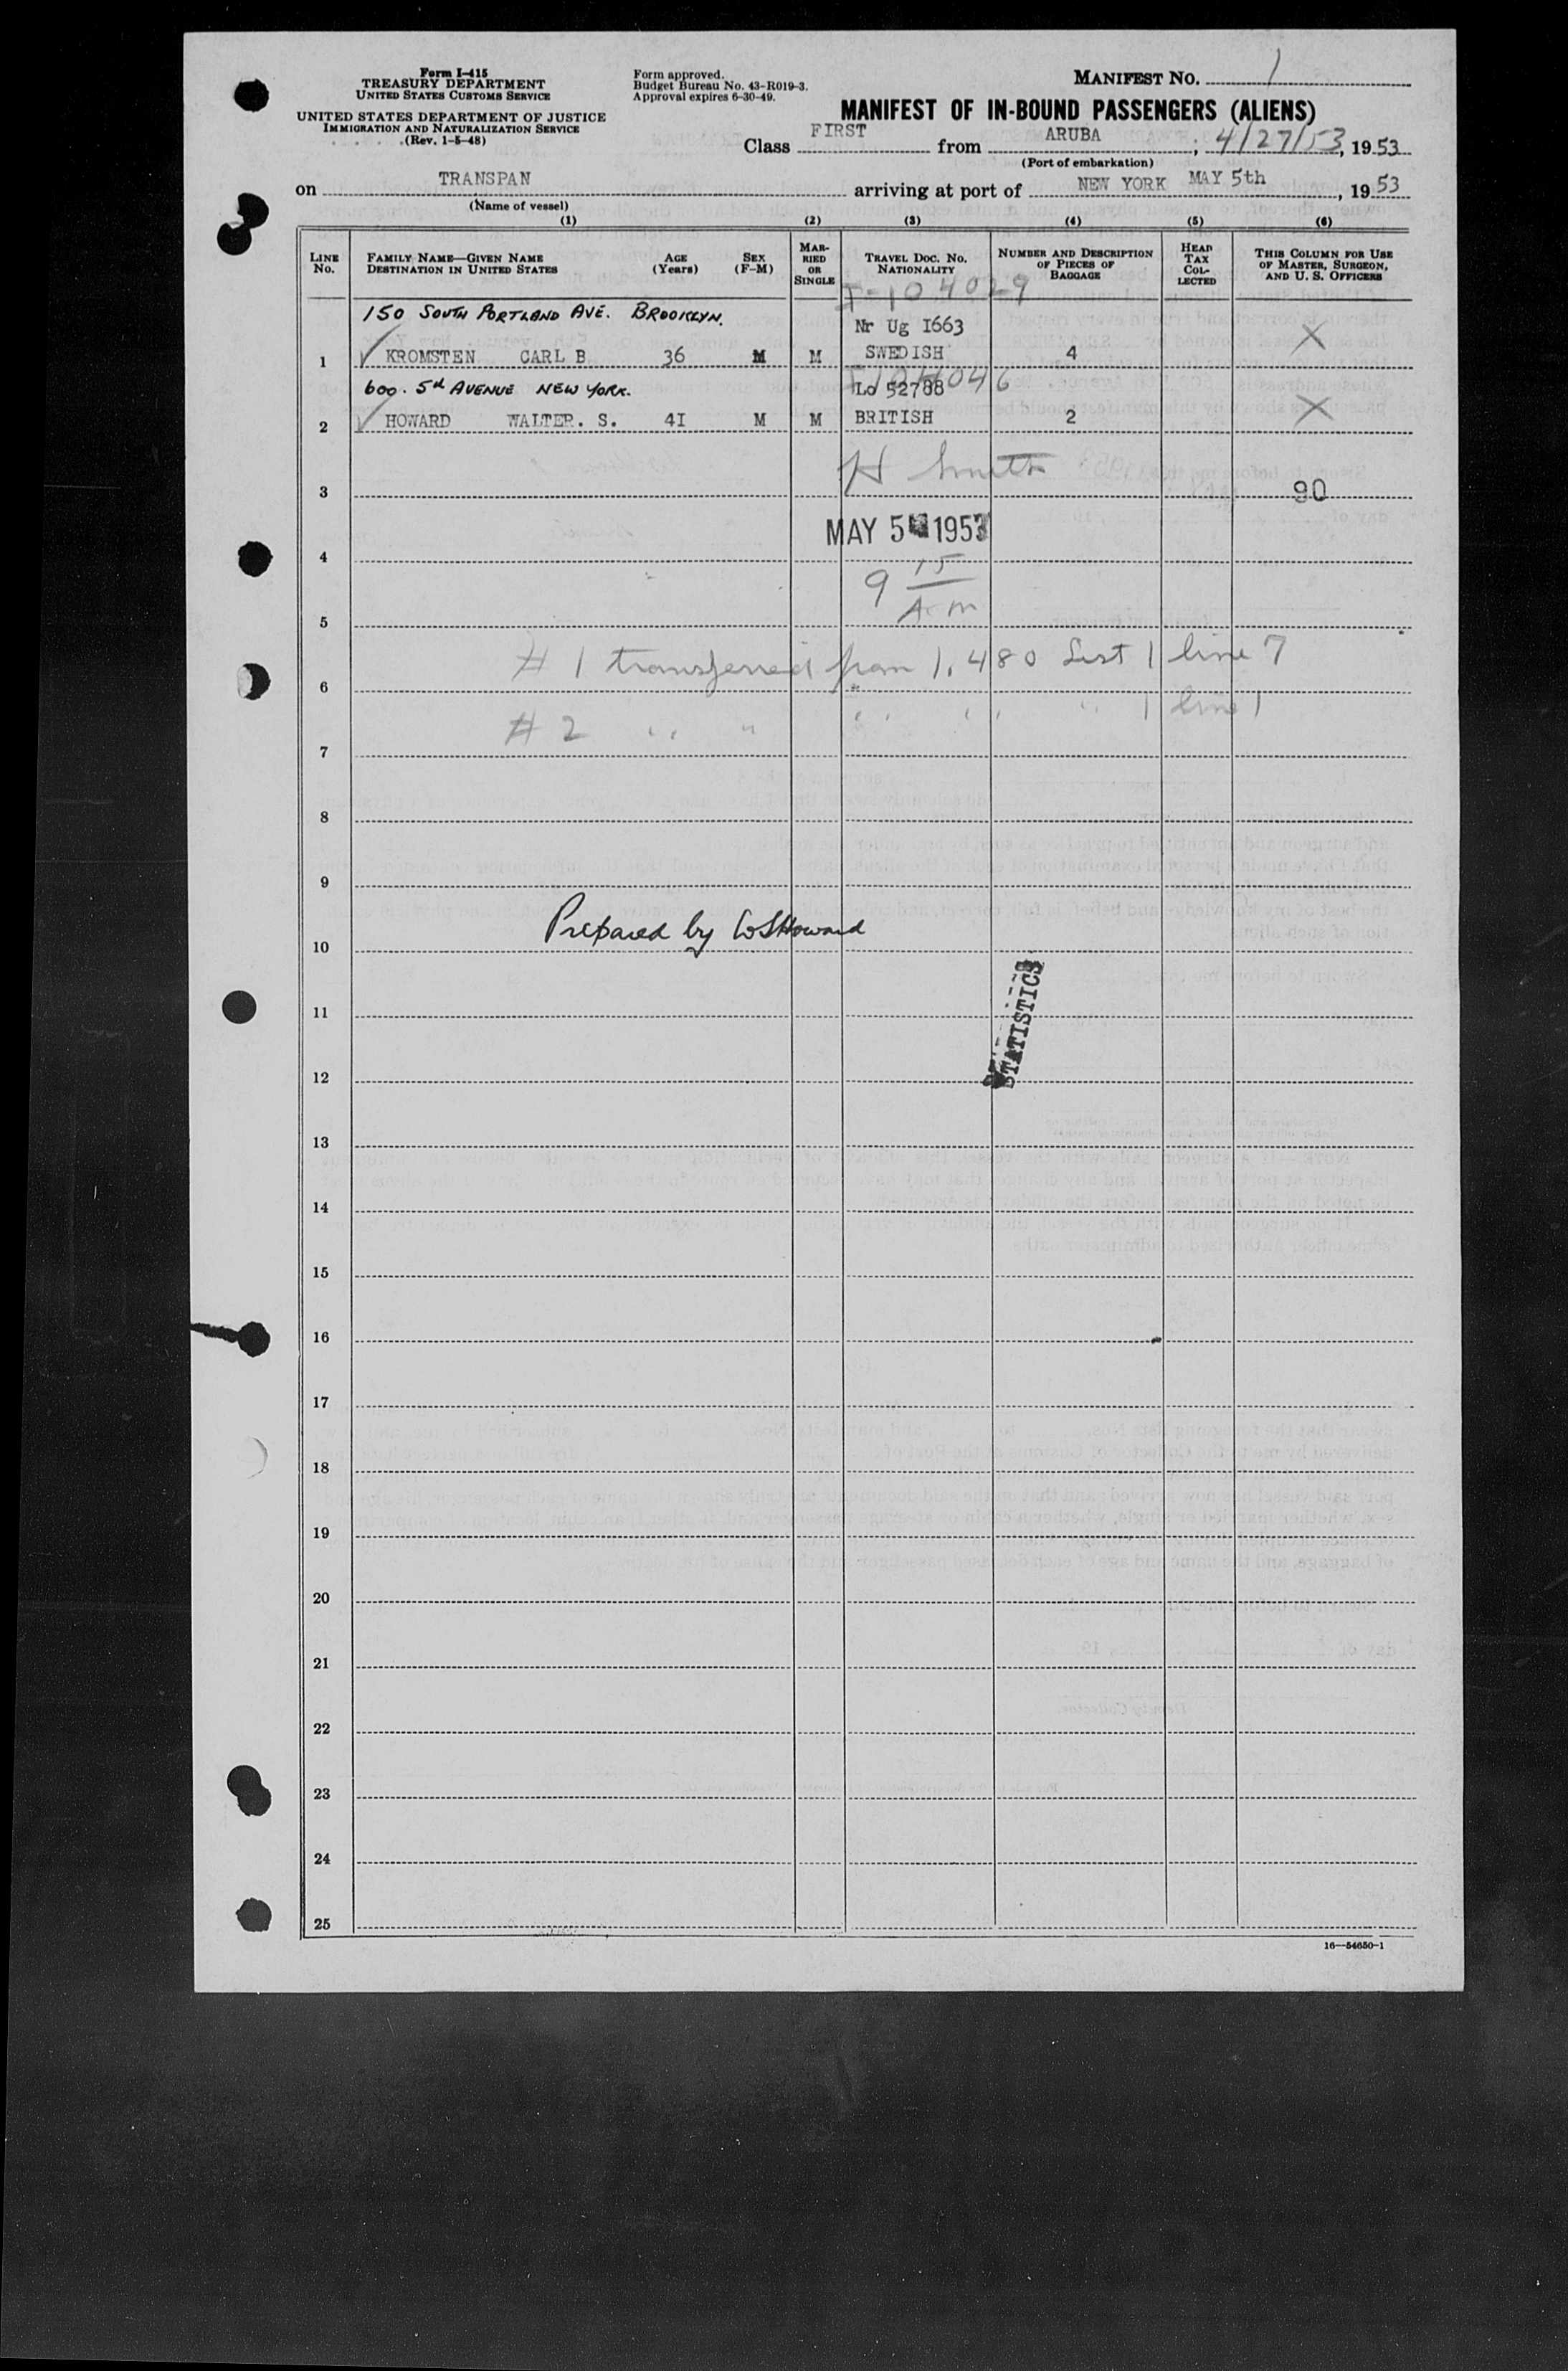 Form I-415
TREASURY DEPARTMENT
UNITED STATES CUSTOMS SERVICE
UNITED STATES DEPARTMENT OF JUSTICE
IMMIGRATION AND NATURALIZATION SERVICE
(Rev. 1-5-48)
Form approved.
Budget Bureau No. 43-R019-3.
Approval expires 6-30-49.
MANIFEST NO. 1
MANIFEST OF IN-BOUND PASSENGERS (ALIENS)
Class FIRST from ARUBA, 4/27/53, 1953
(Port of embarkation)
on TRANSPAN arriving at port of NEW YORK MAY 5th, 1953
(Name of vessel)
(1) (2) (3) (4) (5) (6)
LINE NO.
FAMILY NAME—GIVEN NAME
DESTINATION IN UNITED STATES
AGE (Years)
SEX (F-M)
MARRIED OR SINGLE
TRAVEL DOC. NO.
NATIONALITY
NUMBER AND DESCRIPTION OF PIECES OF BAGGAGE
HEAD TAX COLLECTED
THIS COLUMN FOR USE OF MASTER, SURGEON, AND U. S. OFFICERS
I-104029
150 SOUTH PORTLAND AVE. BROOKLYN. Nr Ug I663
1 ✓ KROMSTEN CARL B 36 M M SWEDISH 4 X
600. 5th AVENUE NEW YORK. Lo 52788
2 ✓ HOWARD WALTER. S. 4I M M BRITISH 2 X
H Smith
3 90
MAY 5 1953
4
9 15
A.m
5
# 1 transferred from 1.480 List 1 line 7
6
# 2 " " " " " 1 line 1
7
8
9
Prepared by WSHoward
10
STATISTICS
11
12
13
14
15
16
17
18
19
20
21
22
23
24
25
16—54650-1